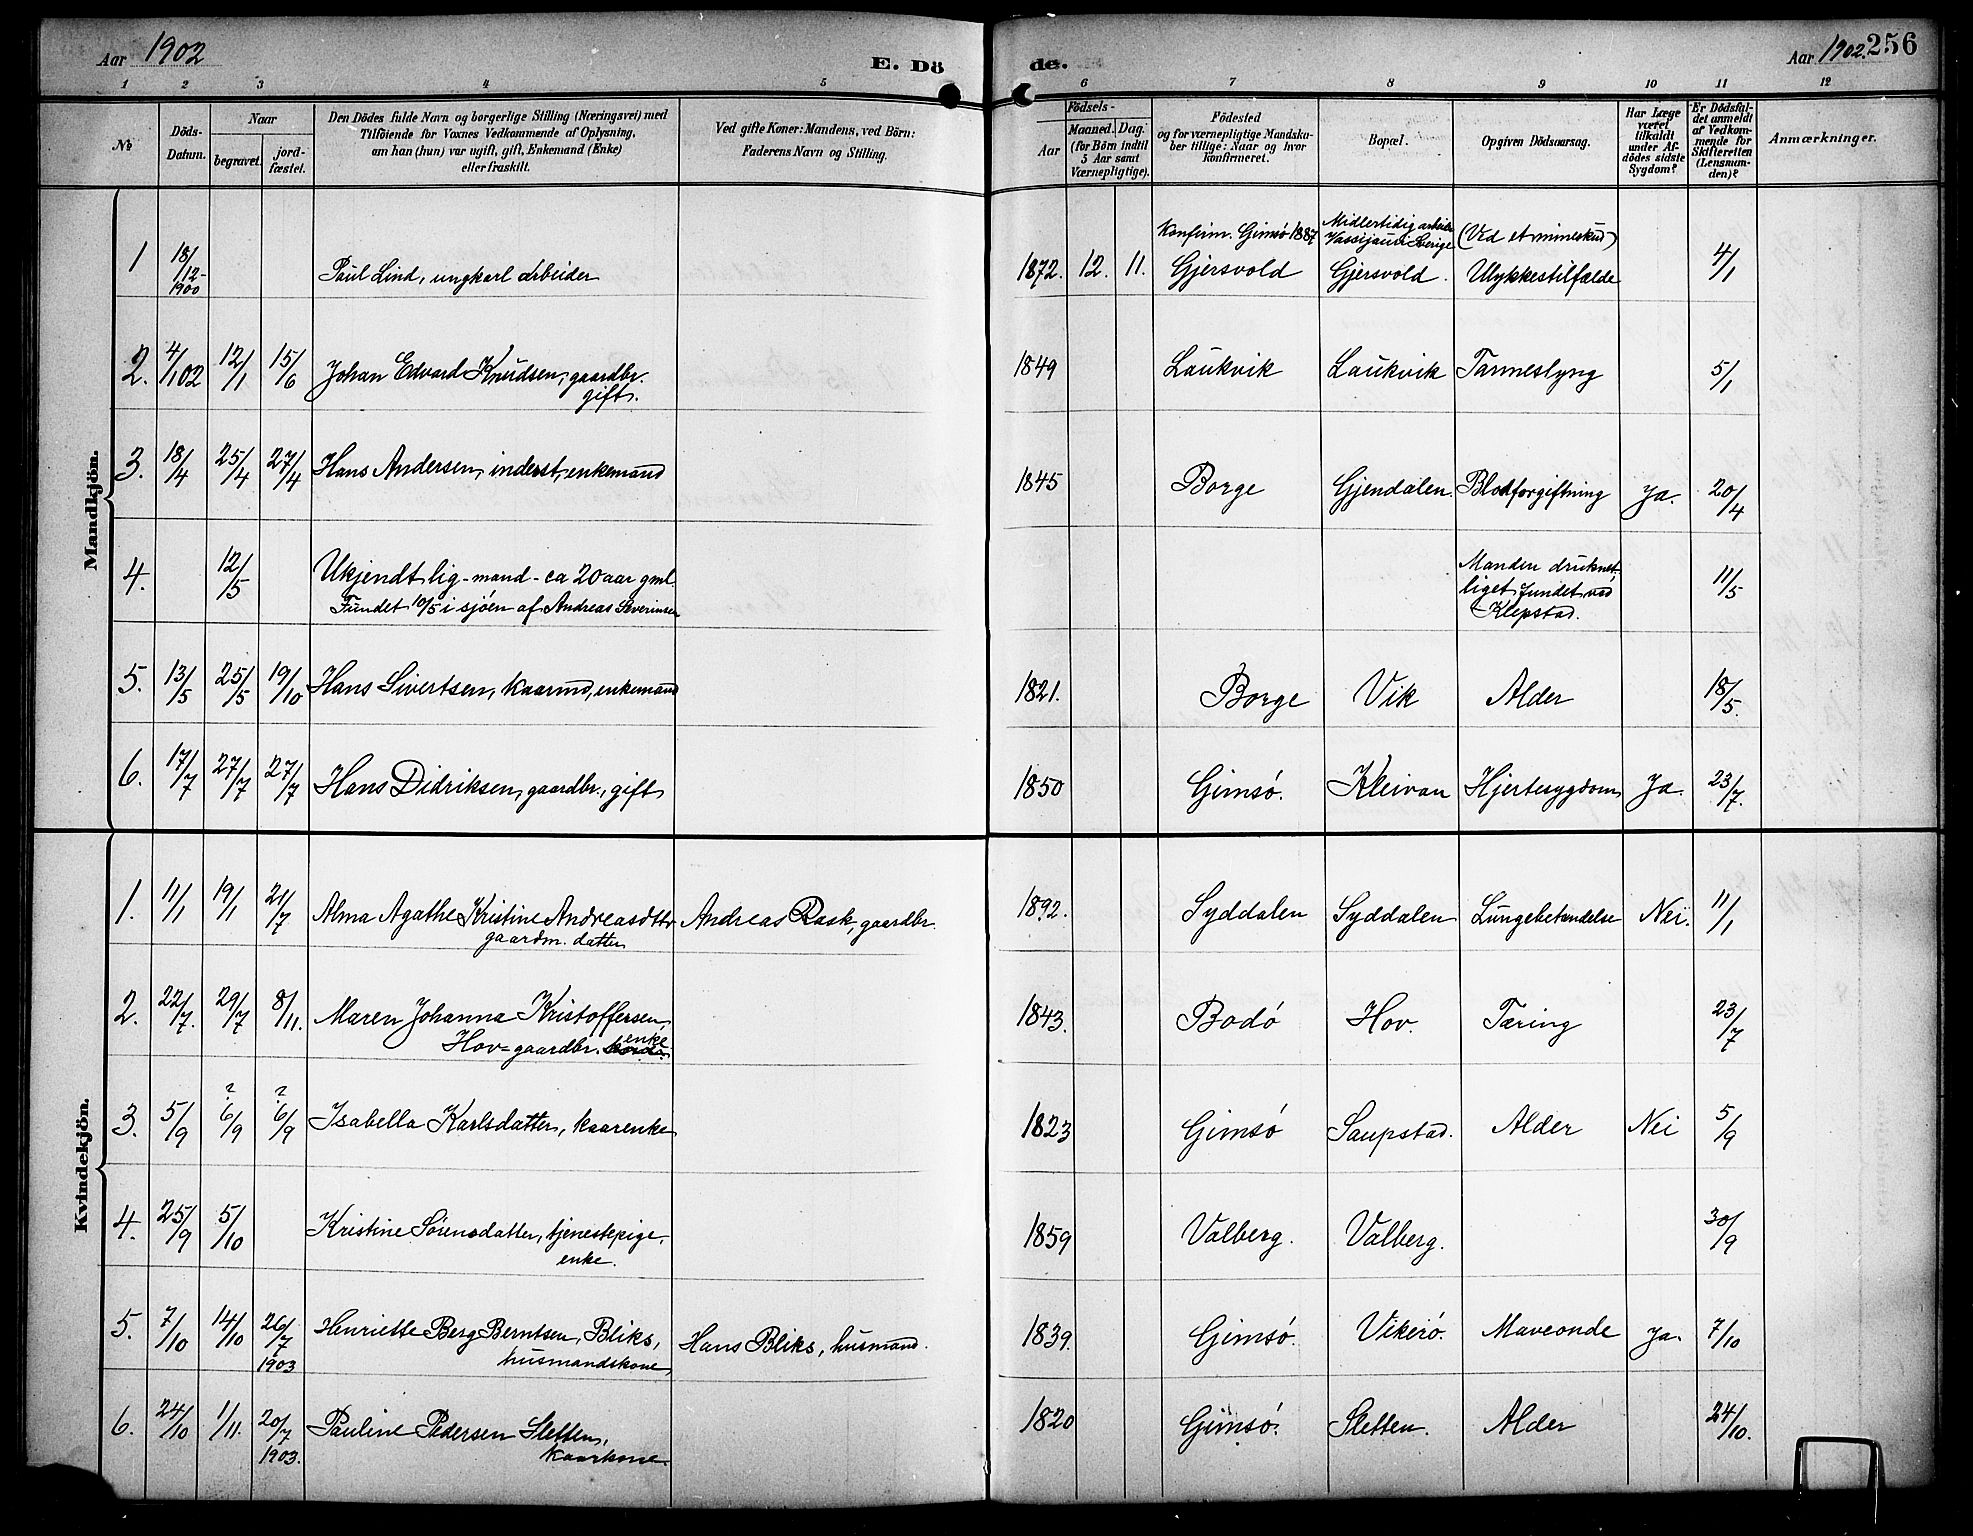 Aar 1902
E. Dö
de.
Aar 1902. 256
1 2 3 4 5 6 7 8 9 10 11 12
№
Döds-Datum.
Naar
begravet.
jord-fæstet.
Den Dödes fulde Navn og borgerlige Stilling (Næringsvei) med
Tilföiende for Voxnes Vedkommende af Oplysning,
om han (hun) var ugift, gift, Enkemand (Enke)
eller fraskilt.
Ved gifte Koner: Mandens, ved Börn:
Faderens Navn og Stilling.
Födsels-
Aar
Maaned. Dag.
(for Börn indtil
5 Aar samt
Værnepligtige).
Födested
og for værnepligtige Mandska-
ber tillige: Naar og hvor
konfirmeret.
Bopæl.
Opgiven Dödsaarsag.
Har Læge
været
tilkaldt
under Af-
dödes sidste
Sygdom?
Er Dödsfal-
det anmeldt
af Vedkom-
mende for
Skifteretten
(Lensman-
den)?
Anmærkninger.
Mandkjön.
1 18/12-1900 Paul Lind, ungkarl arbeider 1872. 12. 11. Konfirm. Gimsö 1887 Gjersvold Midlertidig arbeider Vassijaur i Sverige Gjersvold. (Ved et mineskud) Ulykkestilfælde 4/1
2. 4/1 02 12/1 15/6 Johan Edvard Knudsen, gaardbr. gift. 1849 Laukvik Laukvik Tanneslyng 5/1
3. 18/4 25/4 27/4 Hans Andersen, inderst, enkemand 1845 Borge Gjendalen. Blodforgiftning Ja. 20/4
4. 12/5 Ukjendt lig - mand - ca 20 aar gml.
Fundet 10/5 i sjöen af Andreas Severinsen Manden druknet. liget fundet ved Klepstad. 11/5
5. 13/5 25/5 19/10 Hans Sivertsen, kaarmd, enkemand 1821. Borge Vik Alder 18/5.
6. 17/7 27/7 27/7 Hans Didriksen, gaardbr., gift 1850 Gimsö. Kleivan Hjertesygdom Ja. 23/7.
Kvindekjön.
1. 11/1 19/1 21/7 Alma Agathe Kristine Andreasdttr gaardm. datter Andreas Rask, gaardbr. 1892. Syddalen Syddalen Lungebetændelse Nei. 11/1
2. 22/7. 29/7 8/11. Maren Johanna Kristoffersen,
Hov = gaardbr. enke 1843. Bodö Hov. Tæring 23/7
3. 5/9 ? 6/9 ? 6/9 Isabella Karlsdatter, kaarenke 1823 Gimsö Saupstad. Alder Nei 5/9
4. 25/9 5/10 Kristine Sörensdatter, tjenestepige, enke. 1859 Valberg. Valberg. 30/9
5. 7/10 14/10 26/7 1903 Henriette Berg Berntsen, Bliks, husmandskone, Hans Bliks, husmand. 1839. Gimsö. Vikerö. Maveonde Ja. 7/10
6. 24/10 1/11. 20/7 1903. Pauline Pedersen Sletten, kaarkone. 1820 Gimsö. Sletten. Alder 24/10.